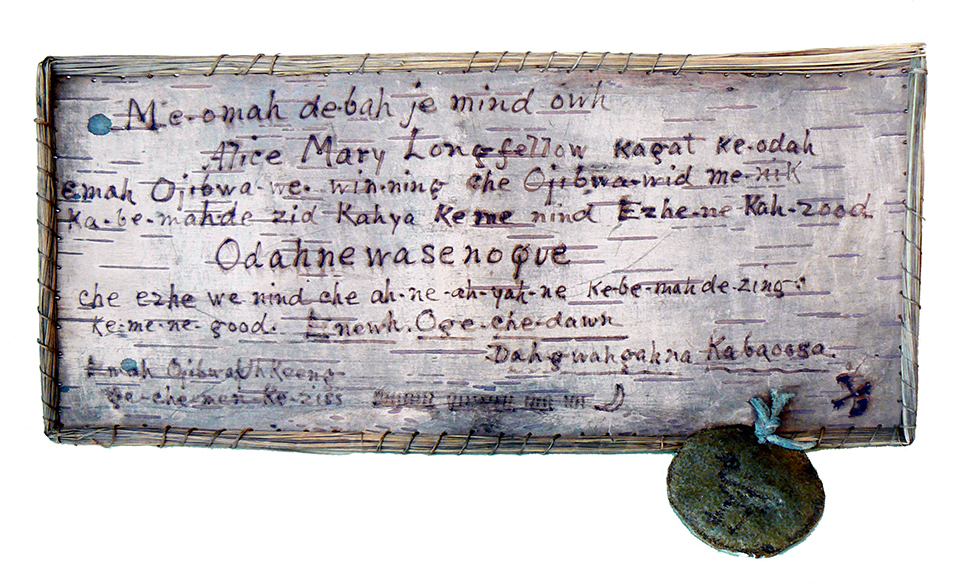 Me-omah de-bah je mind owh
Alice Mary Longfellow kagat ke-odah
emah Ojibwa-we-win-ning che Ojibwa-wid me-nik
Ka-be-mahde zid Kahya Ke me nind Ezhe-ne Kah-zood
Odahnewasenoque
che ezhe we nind che ah-ne-ah-yah-ne Ke-be-mahde-zing:
Ke-me-ne-good. Enewh. Oge-che-dawn
Dahgwahgahna Kabaoosa.
Emah
Ke-ziss